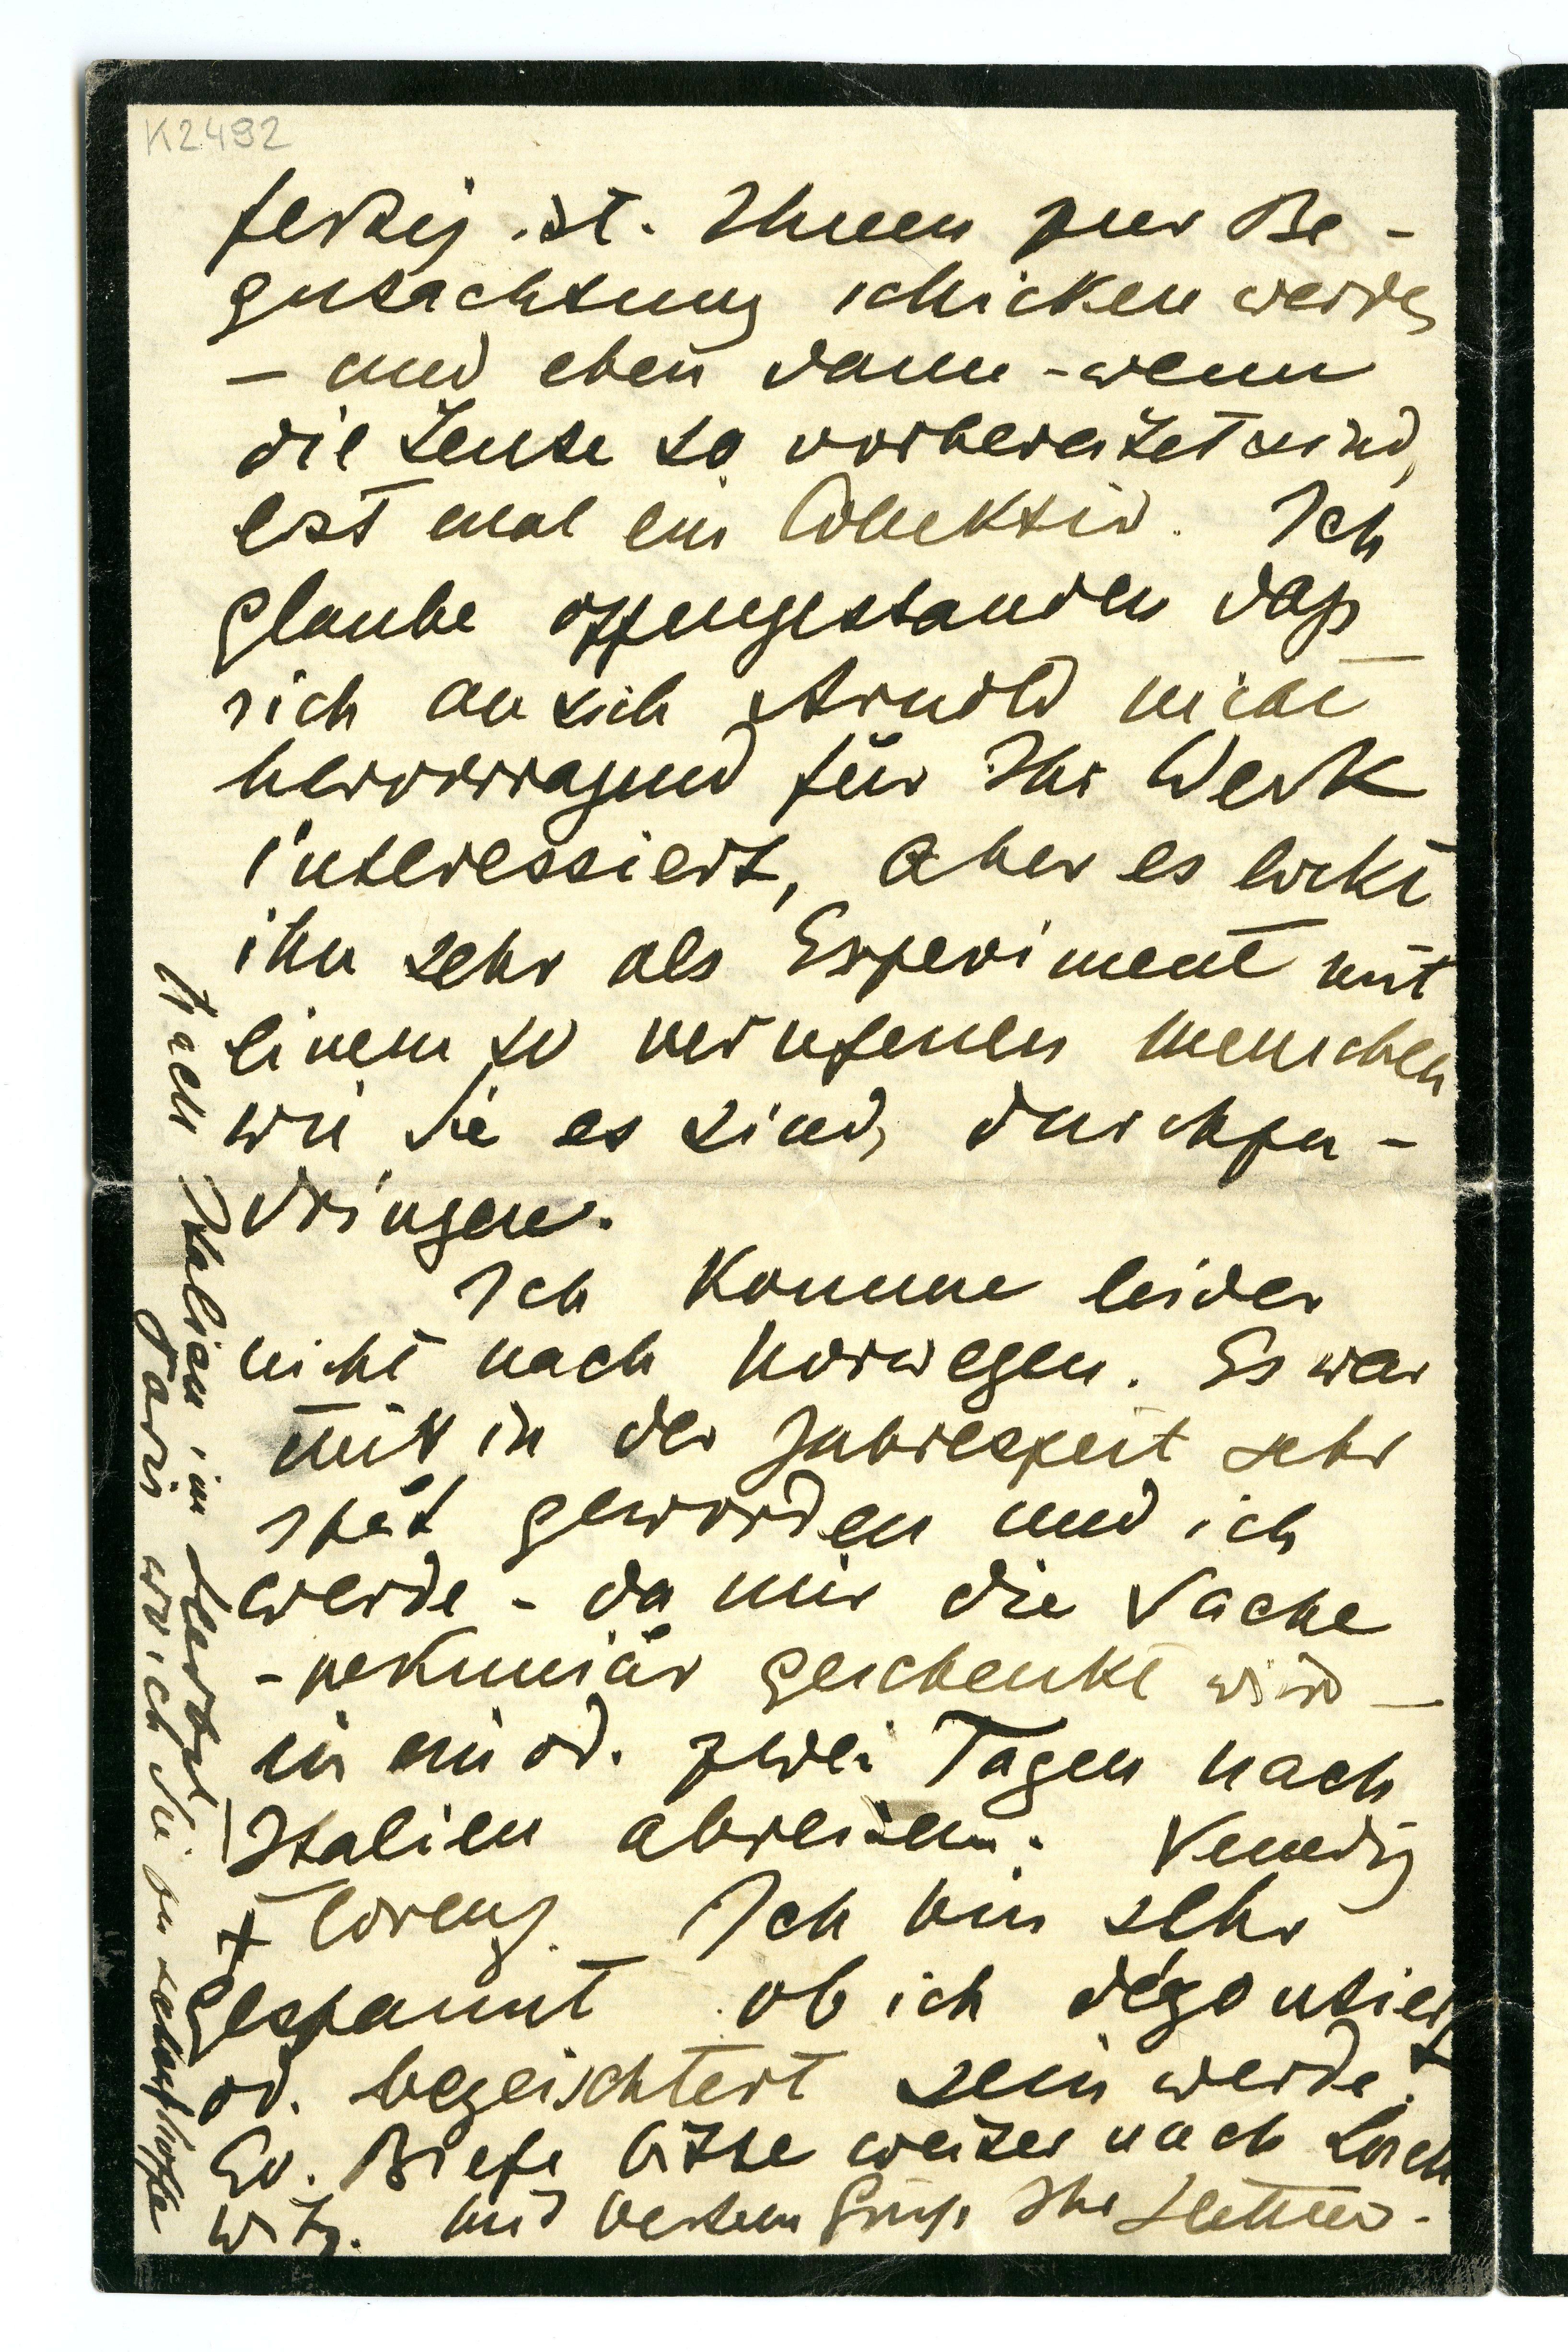 K2492
fertig ist. Ihnen zur Be-
gutachtung schicken werde,
– und eben dann – wenn
die Leute so vorbereitet sind,
erst mal ein Collektiv. Ich
glaube offengestanden daß
sich an sich Arnold nicht
hervorragend für Ihr Werk
interessiert, aber es lockt
ihn sehr als Experiment mit
einem so verrufenen Menschen
wie Sie es sind, durchzu-
dringen.
Ich komme leider
nicht nach Norwegen. Es war
mir in der Jahreszeit sehr
spät geworden und ich
werde – da mir die Sache
– pekuniär geschenkt wird –
in ein od. zwei Tagen nach
Italien abreisen: Venedig
+ Florenz. Ich bin sehr
gespannt ob ich dégoutiert
od. begeistert sein werde.
Ev. Briefe bitte weiter nach Losch
witz. Mit bestem Gruß Ihr Hettner.
Nach Italien im Herbst
Paris wo ich Sie zu sehen hoffe